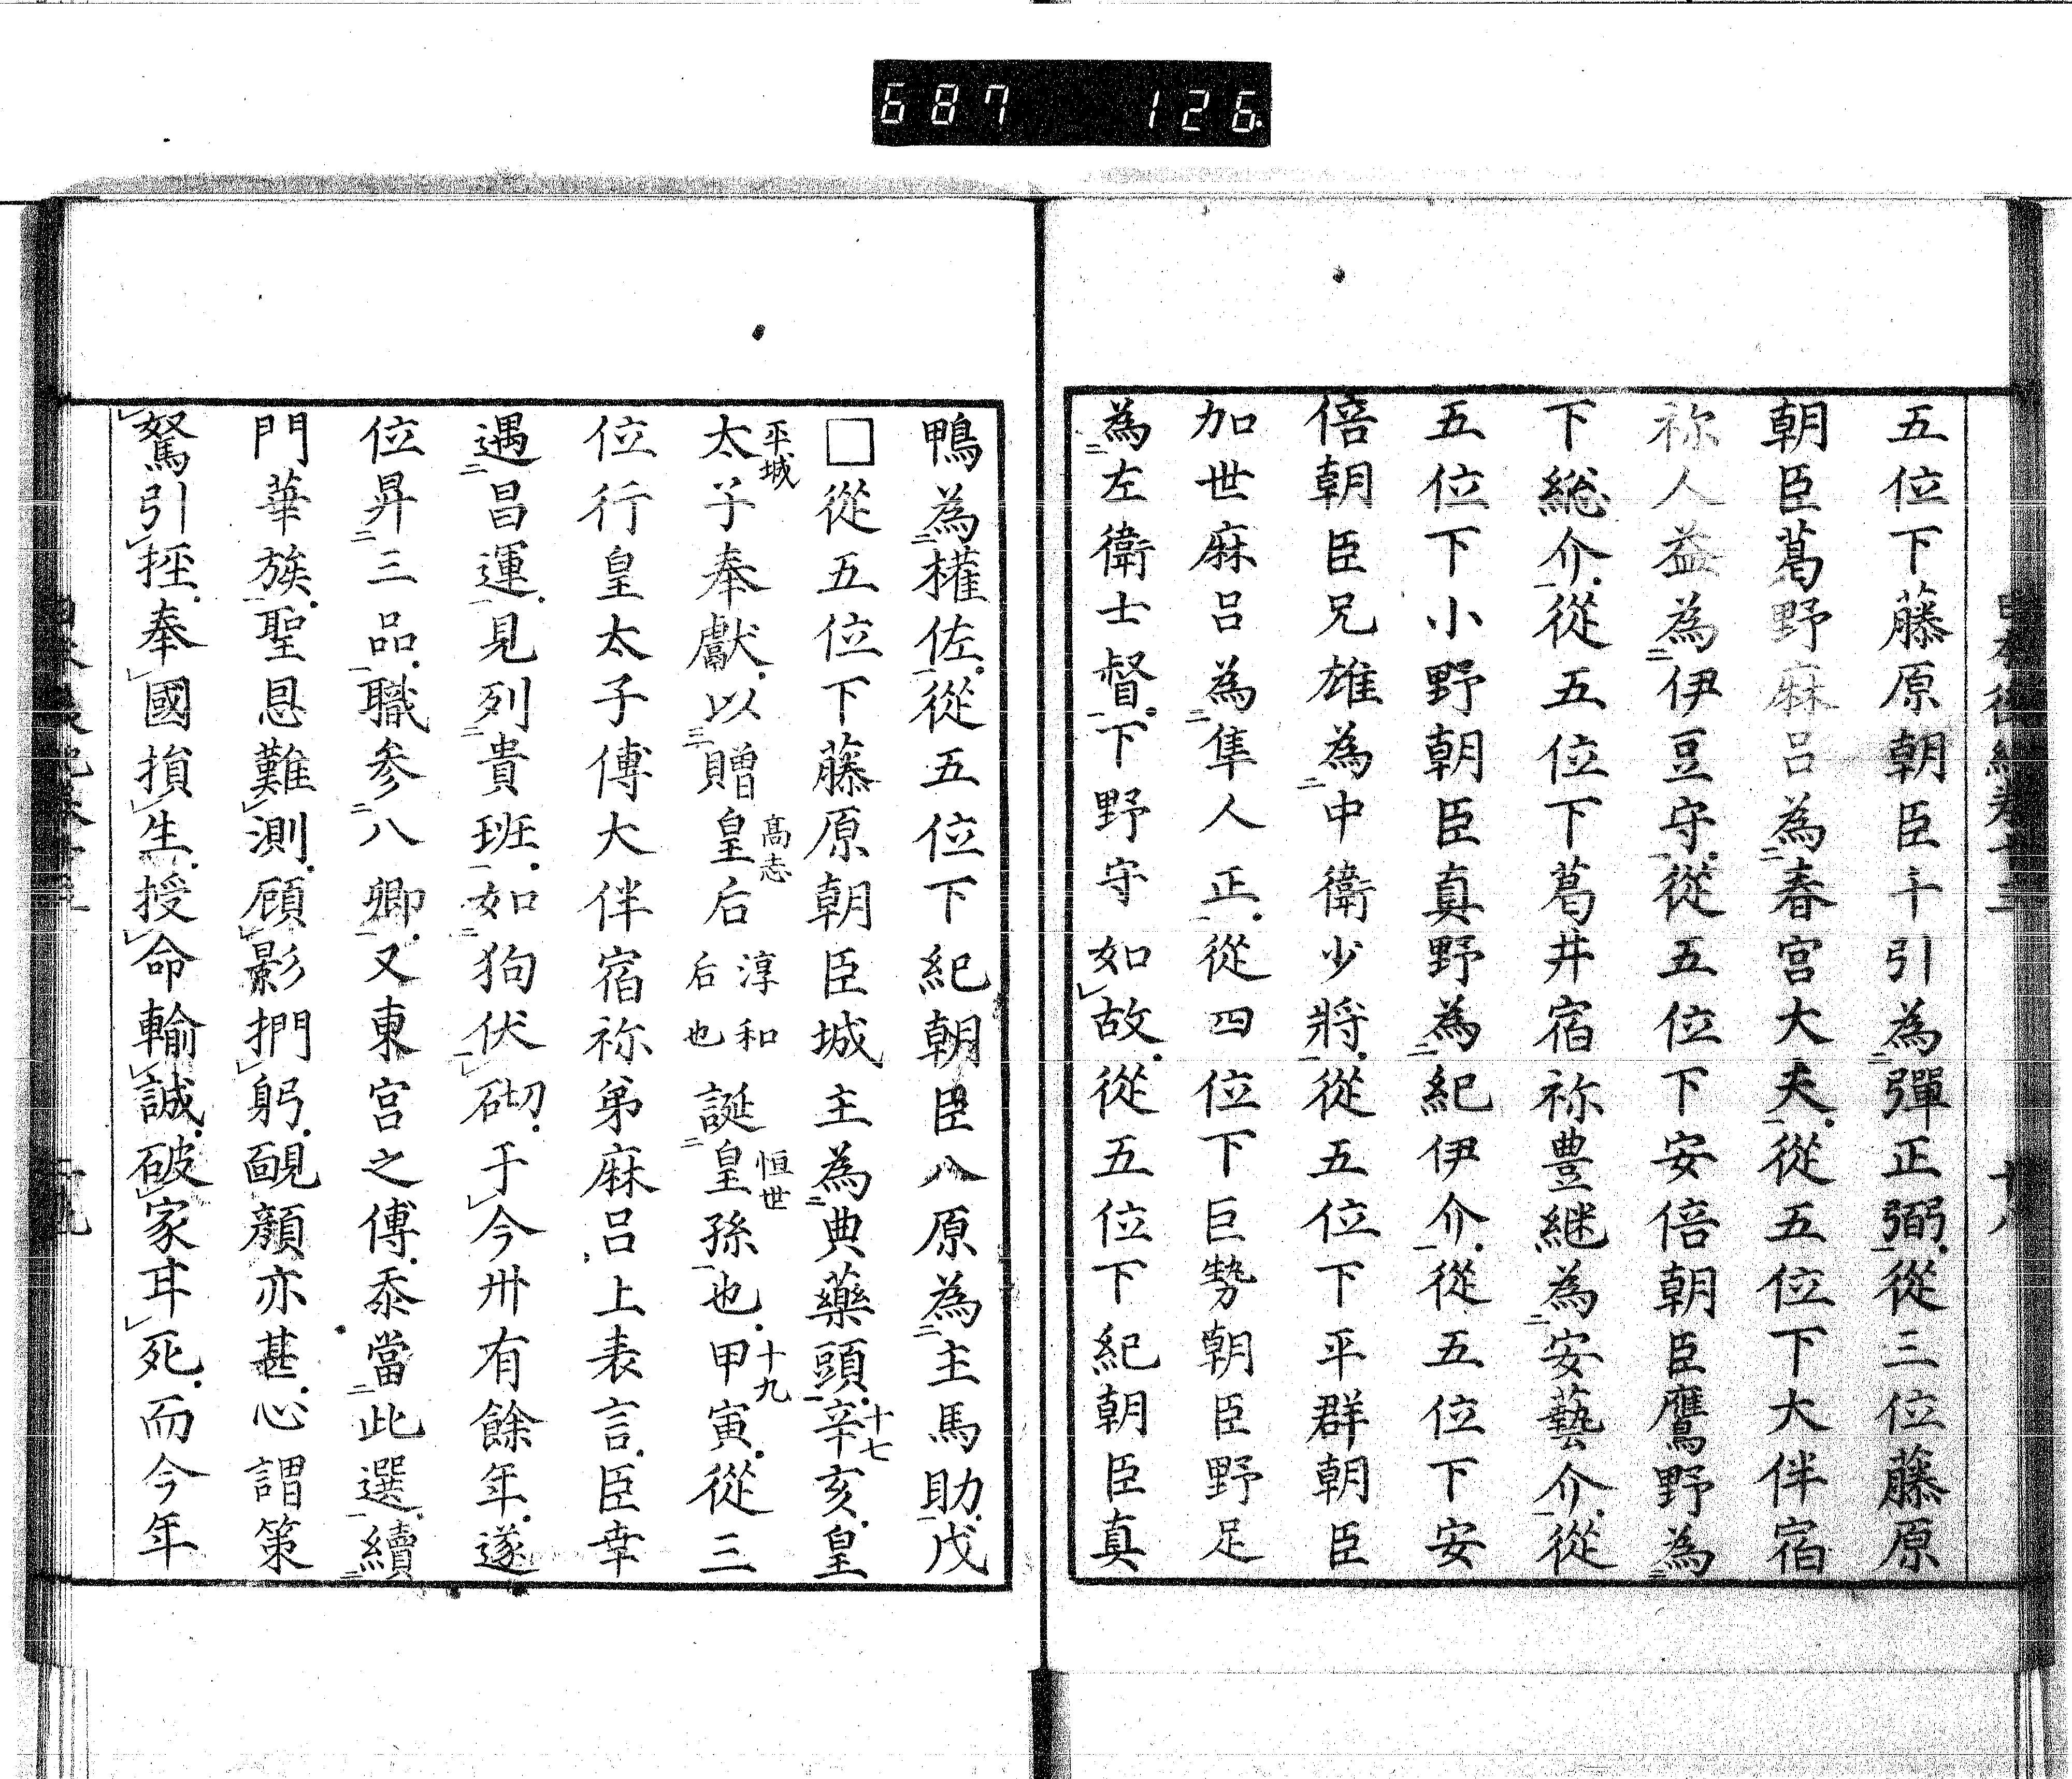 687 126
五位下藤原朝臣千引為彈正弼從三位藤原
朝臣葛野麻呂為春宮大夫從五位下大伴宿
祢人益為伊豆守從五位下安倍朝臣鷹野為
下総介從五位下葛井宿祢豊継為安藝介從
五位下小野朝臣真野為紀伊介從五位下安
倍朝臣兄雄為中衛少将從五位下平群朝臣
加世麻呂為隼人正從四位下巨勢朝臣野足
為左衛士督下野守如故從五位下紀朝臣真
鴨為權佐從五位下紀朝臣八原為主馬助戊
□從五位下藤原朝臣城主為典藥頭辛亥皇
十七
太子奉獻以贈皇后淳和后也誕皇孫也甲寅從三
平城
高志
恒世
十九
位行皇太子傅大伴宿祢弟麻呂上表言臣幸
遇昌運見列貴班如狗伏砌于今卅有餘年遂
位昇三品職参八卿又東宮之傅忝當此選續
門華族聖恩難測顧影捫躬靦顔亦甚心謂策
駑引挃奉國損生授命輸誠破家耳死而今年